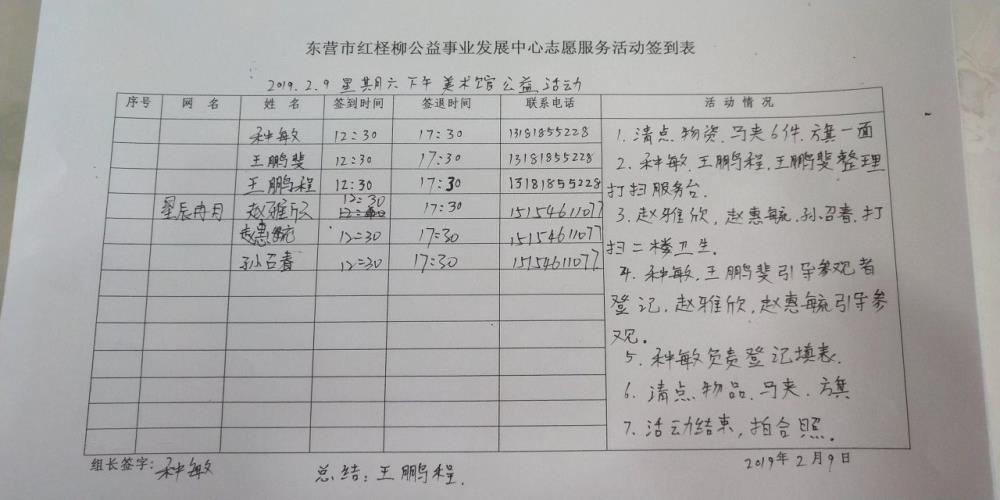 东营市红柽柳公益事业发展中心志愿服务活动签到表
2019.2.9 星期六下午美术馆公益活动
序号 网名 姓名 签到时间 签退时间 联系电话 活动情况
种敏 12:30 17:30 13181855228
王鹏斐 12:30 17:30 13181855228
王鹏程 12:30 17:30 13181855228
星辰冉月 赵雅欣 12:30 17:30 15154611077
赵惠毓 12:30 17:30 15154611077
孙召春 12:30 17:30 15154611077
1.清点物资.马夹6件.旗一面
2.种敏.王鹏程.王鹏斐整理
打扫服务台.
3.赵雅欣,赵惠毓.孙召春.打
扫二楼卫生.
4.种敏.王鹏斐引导参观者
登记.赵雅欣,赵惠毓引导参
观.
5.种敏负责登记填表.
6.清点物品.马夹.旗
7.活动结束,拍合照.
组长签字:种敏 总结:王鹏程. 2019年2月9日